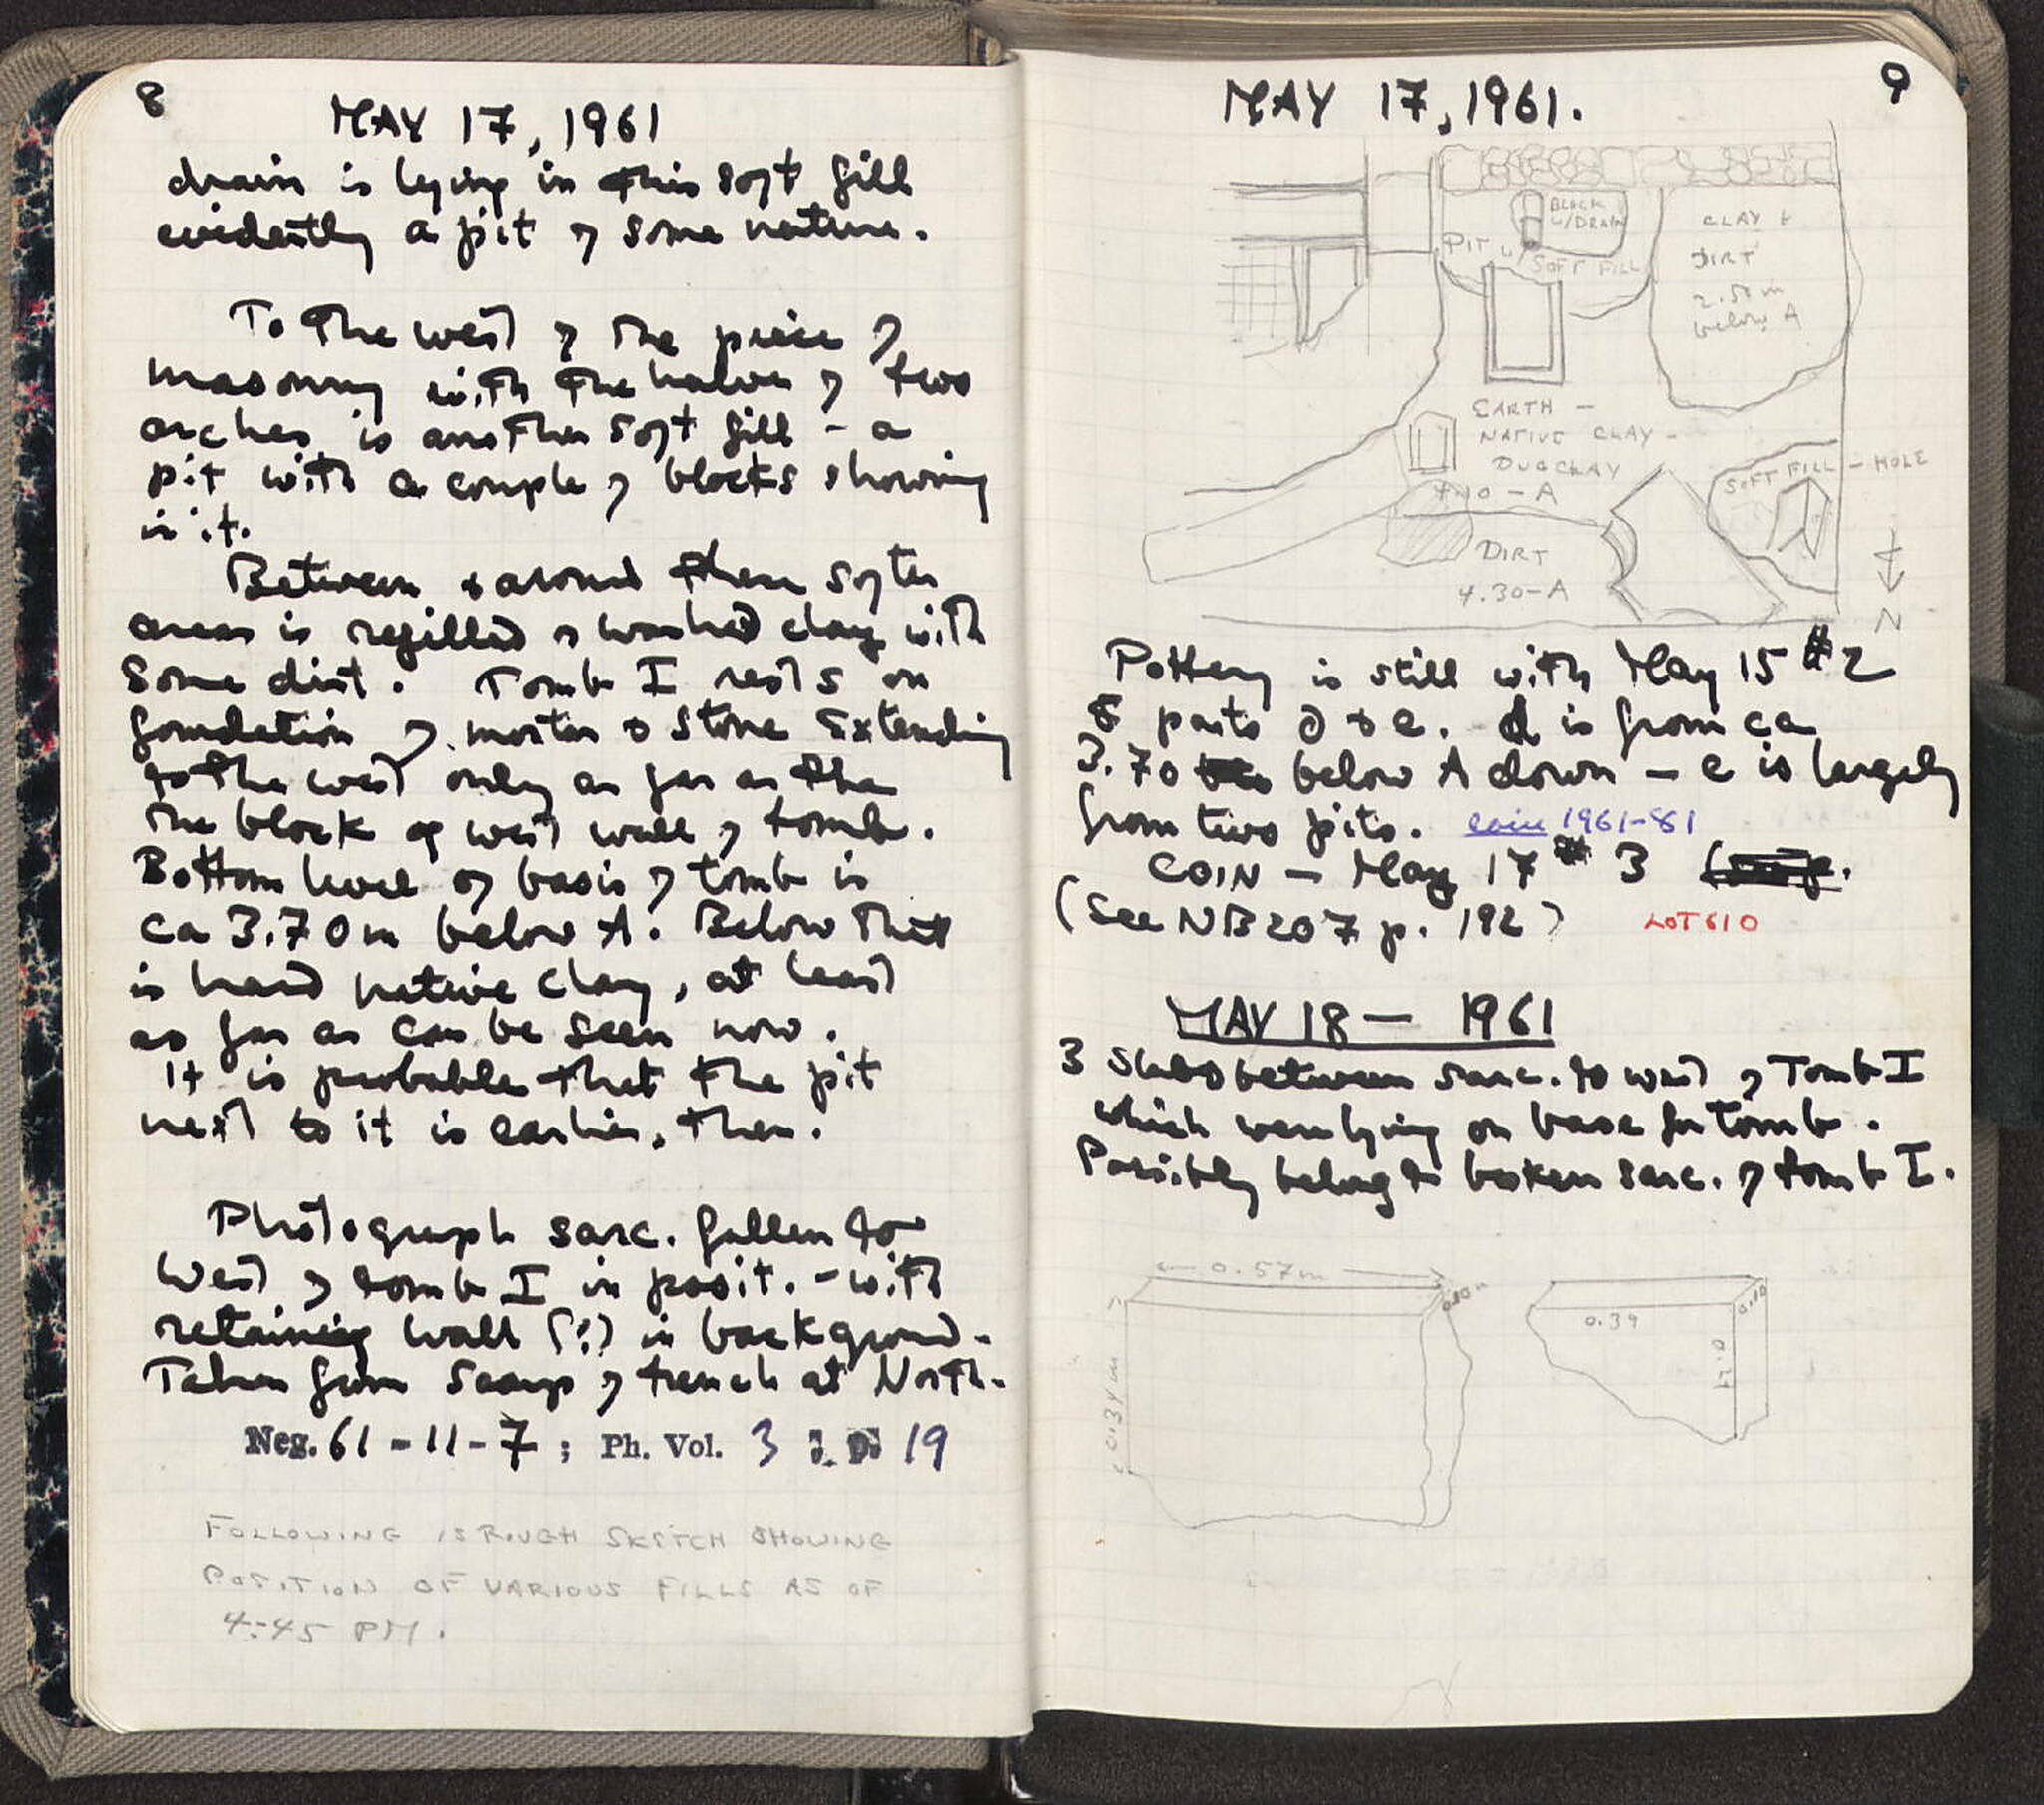 8
MAY 17, 1961
drain is lying in this soft fill
evidently a pit of some nature.
To the west of the piece of
masonry with the halves of two
arches is another soft fill - a
pit with a couple of blocks showing
in it.
Between & around these softer
areas is refilled or washed clay with
some dirt. Tomb I rests on
foundation of mortar & stone extending
to the west only as far as the
the block of west wall of tomb.
Bottom level of basis of tomb is
ca 3.70m below A. Below that
is hard native clay, at least
as far as can be seen now.
It is probable that the pit
next to it is earlier, then.
Photograph sarc. fallen to
West of tomb I in posit. - with
retaining wall (?) in background.
Taken from scarp of trench at North.
Neg. 61-11-7; Ph. Vol. 3 : P. 19
FOLLOWING IS ROUGH SKETCH SHOWING
POSITION OF VARIOUS FILLS AS OF
4:45 PM.
9
MAY 17, 1961.
BLOCK
W/DRAIN
PIT W/ SOFT FILL
CLAY +
DIRT
2.50m
below A
EARTH -
NATIVE CLAY -
DUG CLAY
4.10 - A
SOFT FILL - HOLE
DIRT
4.30-A
N
Pottery is still with May 15 #2
& parts d & e. d is from ca
3.70 below A down - e is largely
from two pits. coin 1961-81
COIN - May 17 # 3
(See NB 207 p. 192)
LOT 610
MAY 18 - 1961
3 Slabs between sarc. to west of Tomb I
which were lying on base for tomb.
Possibly belong to broken sarc. of tomb I.
0.57m
0.10m
0.34m
0.39
0.10